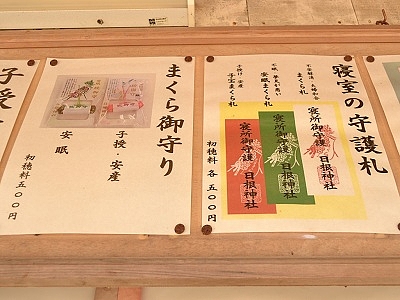 寝室の守護札
不安解消・夫婦和合
まくら札
不眠・夢見が悪い
安眠まくら札
子授け・安産
子宝まくら札
寝所御守護 日根神社
寝所御守護 日根神社
寝所御守護 日根神社
初穂料 各 五〇〇円
まくら御守り
子授・安産
安眠
初穂料 五〇〇円
子授